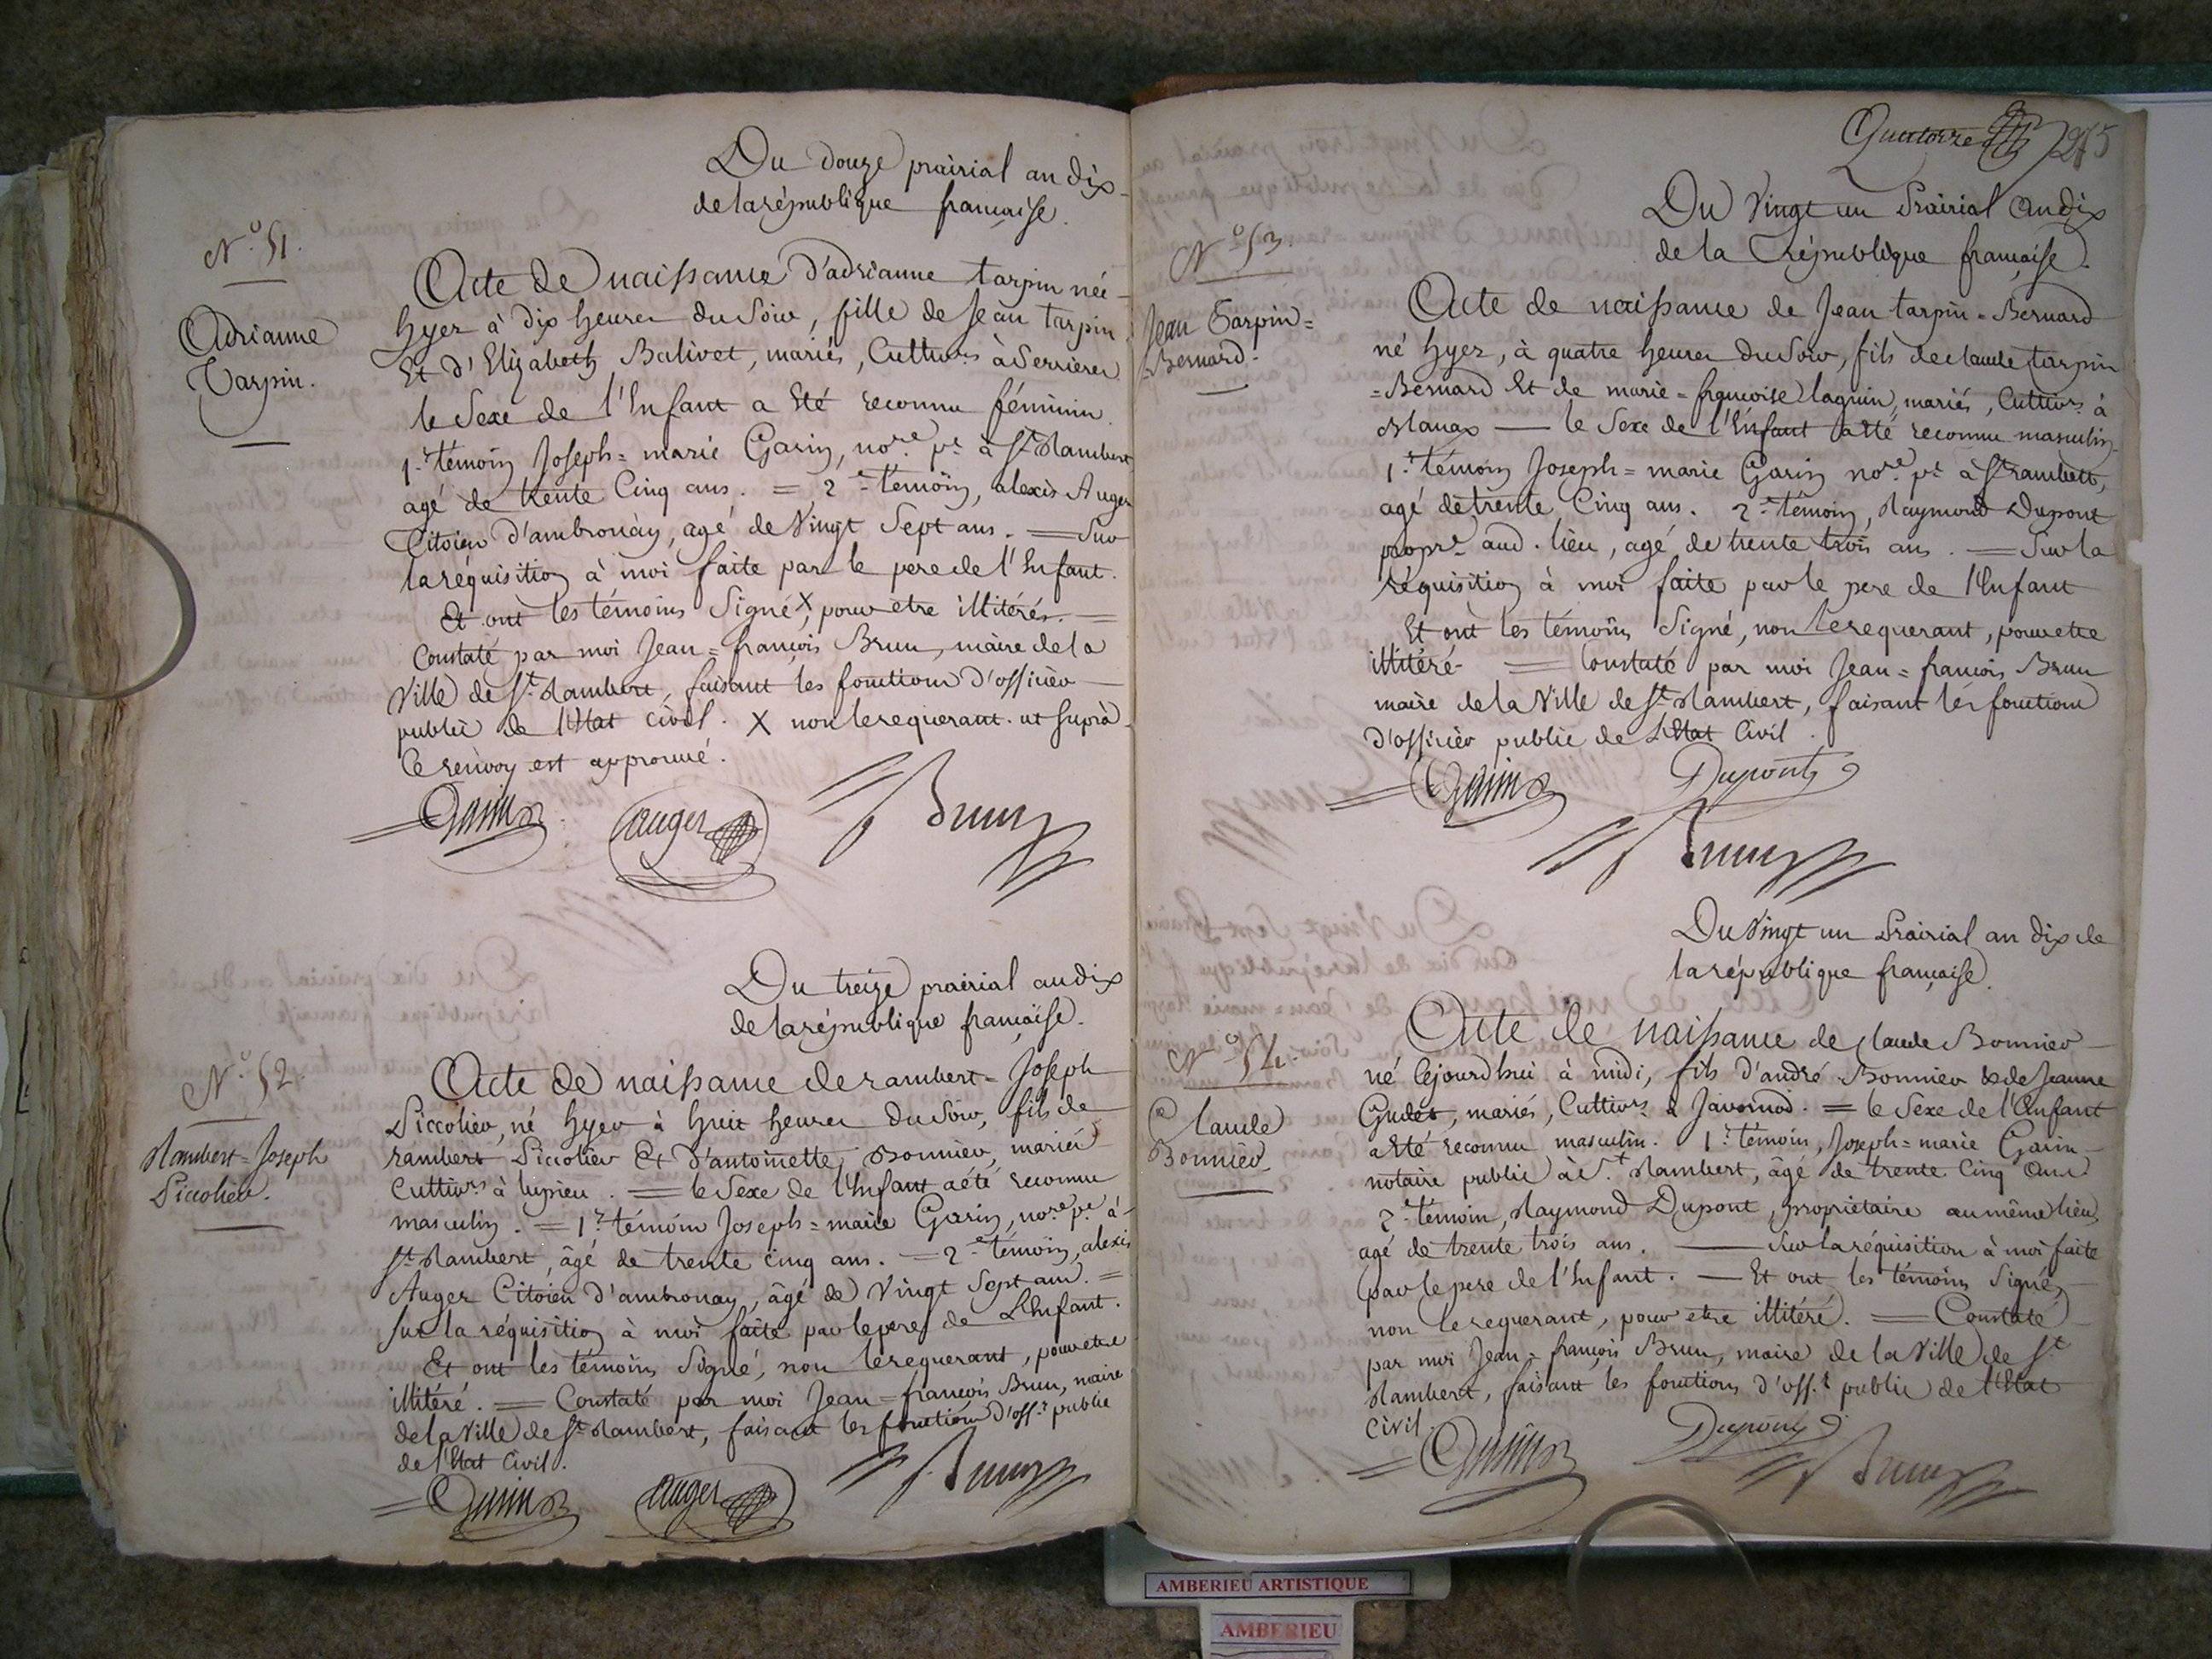 Du douze prairial an dix
de la république française.
N.o 51.
Adrianne
Tarpin.
Acte de naissance d'adrianne tarpin née
hyer à dix heures du Soir, fille de Jean tarpin
Et d'Elizabeth Balivet, mariés, Cultivrs à Serrieres
le Sexe de l'Enfant a Eté reconnu féminin.
1.r témoin Joseph = marie Garin, nore. pc. à St. Rambert
agé de trente Cinq ans. = 2.e témoin, alexis Auger
Citoien d'ambronäy, agé de Vingt Sept ans. = Sur
la réquisition à moi faite par le pere de l'Enfant.
Et ont les témoins Signé X, pour etre illitérés. =
Constaté par moi Jean = françois Brun, maire de la
Ville de St. Rambert, faisant les fonctions d'officier
public de l'Etat civil. X non le requerant. ut suprà.
Ce renvoy est approuvé.
Garin
auger
Brun
Du treize prairial an dix
de la république française.
N.o 52.
Rambert = Joseph
Siccolier.
Acte de naissance de rambert = Joseph
Siccolier, né hyer à huit heures du Soir, fils de
rambert Siccolier Et d'antoinette Bonnier, mariés
Cultivrs à lupieu. = le Sexe de l'Enfant a été reconnu
masculin. = 1.r témoin Joseph = marie Garin, nore. pc. à
St. Rambert, âgé de trente cinq ans. = 2.e témoin, alexis
Auger Citoien d'ambronay, âgé de Vingt Sept ans. =
Sur la réquisition à moi faite par le pere de L'Enfant.
Et ont les témoins Signé, non le requerant, pour etre
illitéré. = Constaté par moi Jean = françois Brun, maire
de la Ville de St. Rambert, faisant les fonctions d'off.r public
de l'Etat Civil.
Garin
auger
Brun
Quatorze
275
Du Vingt un Prairial an dix
de la république française.
N.o 53.
Jean Tarpin =
Bernard.
Acte de naissance de Jean tarpin = Bernard
né hyer, à quatre heures du Soir, fils de claude tarpin
= Bernard Et de marie = françoise laguin, mariés, Cultivrs. à
Blanas — le Sexe de l'Enfant a Eté reconnu masculin
1.r témoin Joseph = marie Garin nore. pc. à St. rambert,
agé de trente Cinq ans. 2.e témoin, Raymond Dupont
propre. aud. lieu, agé de trente trois ans. = Sur la
réquisition à moi faite par le pere de l'Enfant
Et ont les témoins Signé, non le requerant, pour etre
illitéré = Constaté par moi Jean = françois Brun
maire de la Ville de St. Rambert, faisant les fonctions
d'officier public de L'Etat Civil.
Garin
Dupont
Brun
Du Vingt un Prairial an dix de
la république française.
N.o 54.
Claude
Bonnier
Acte de naissance de claude Bonnier
né Cejourdhui à midi, fils d'andré Bonnier & de Jeanne
Gudet, mariés, Cultivrs. à Javornod. = le Sexe de l'Enfant
a Eté reconnu masculin. 1.r témoin, Joseph = marie Garin
notaire public à St. Rambert, âgé de trente Cinq ans
2.e témoin, Raymond Dupont, propriétaire au même lieu,
agé de trente trois ans. — Sur la réquisition à moi faite
par le pere de l'Enfant. — Et ont les témoins Signé,
non le requerant, pour etre illitéré. = Constaté
par moi Jean = françois Brun, maire de la Ville de St.
Rambert, faisant les fonctions d'off.r public de l'Etat
Civil.
Garin
Dupont
Brun
AMBERIEU ARTISTIQUE
AMBERIEU